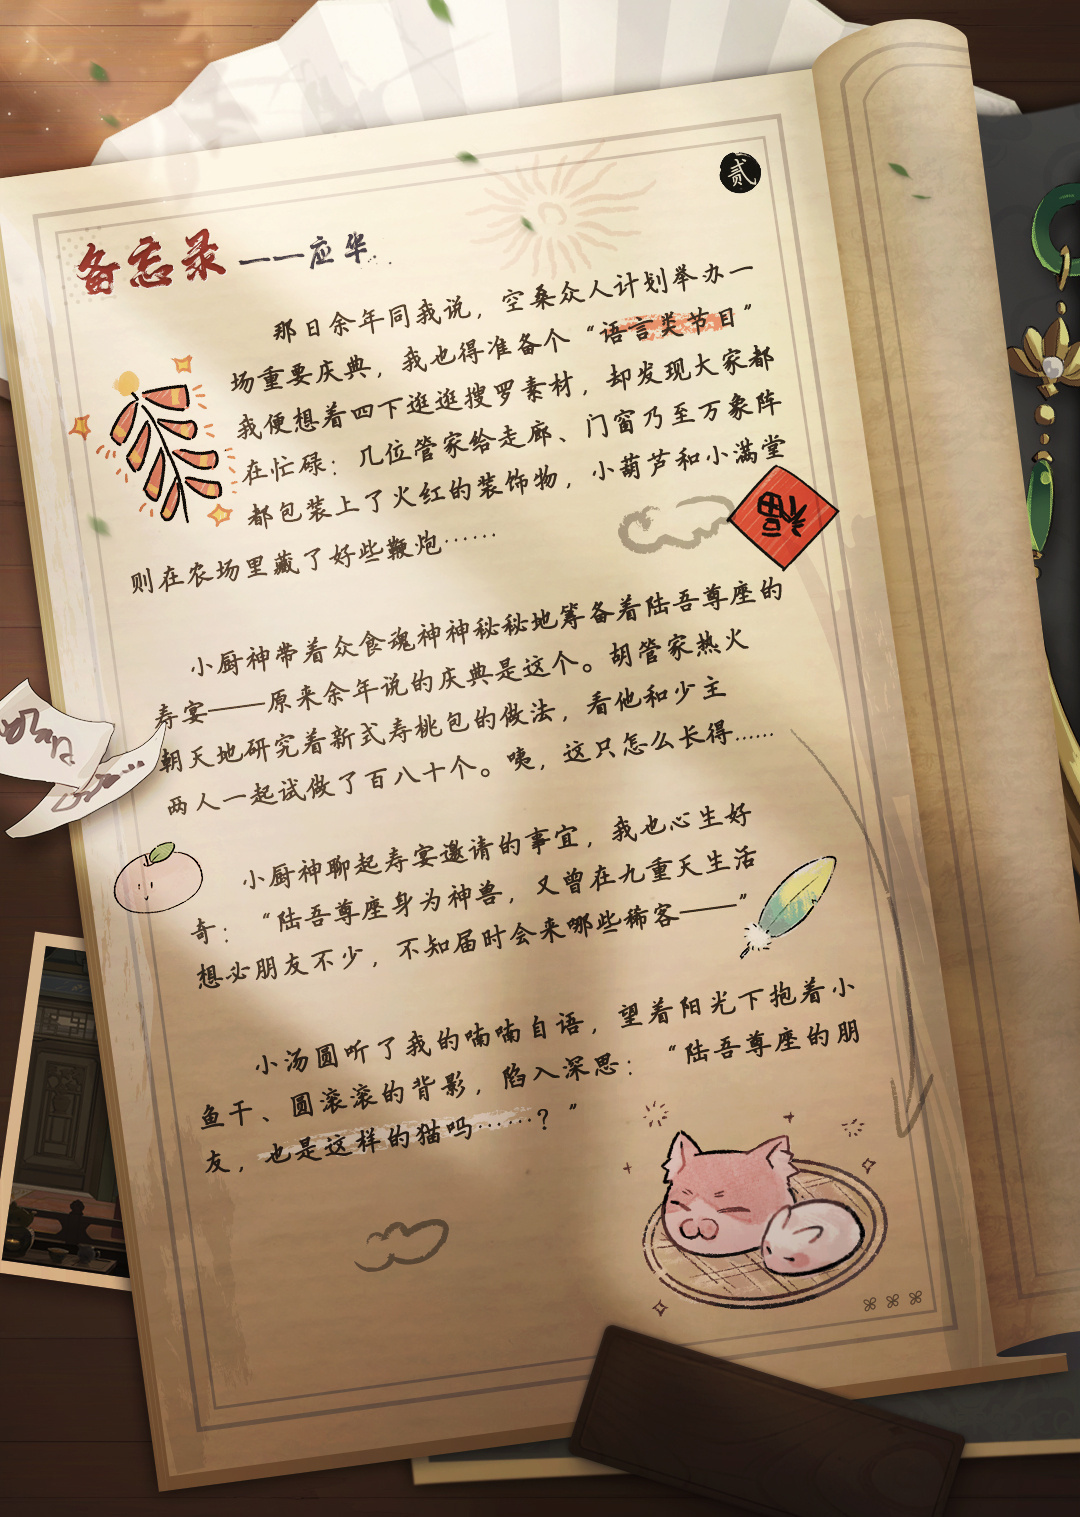 贰
备忘录——应华
那日余年同我说，空桑众人计划举办一
场重要庆典，我也得准备个“语言类节目”
我便想着四下逛逛搜罗素材，却发现大家都
在忙碌：几位管家给走廊、门窗乃至万象阵
都包装上了火红的装饰物，小葫芦和小满堂
则在农场里藏了好些鞭炮……
福
小厨神带着众食魂神神秘秘地筹备着陆吾尊座的
寿宴——原来余年说的庆典是这个。胡管家热火
朝天地研究着新式寿桃包的做法，看他和少主
两人一起试做了百八十个。咦，这只怎么长得……
小厨神聊起寿宴邀请的事宜，我也心生好
奇：“陆吾尊座身为神兽，又曾在九重天生活
想必朋友不少，不知届时会来哪些稀客——”
小汤圆听了我的喃喃自语，望着阳光下抱着小
鱼干、圆滚滚的背影，陷入深思：“陆吾尊座的朋
友，也是这样的猫吗……？”